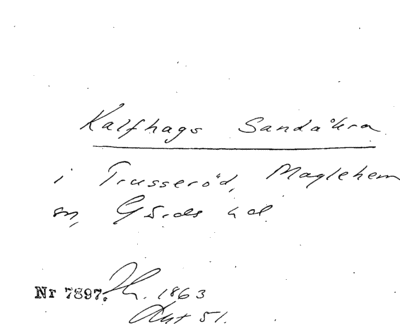 Kalfhags Sandåkra
i Trusseröd, Maglehem
sn, Gärds hd.
Nr 7897. Th. 1863
Akt 51.